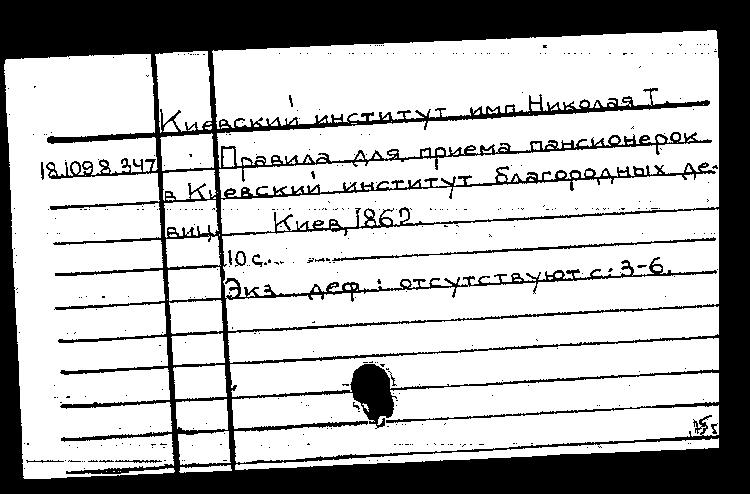 Киевский институт имп. Николая I.
18.109.8.347 Правила для приема пансионерок
в Киевский институт благородных де-
виц. Киев, 1860.
10 с.
Экз. деф.: отсутствуют с: 3-6.